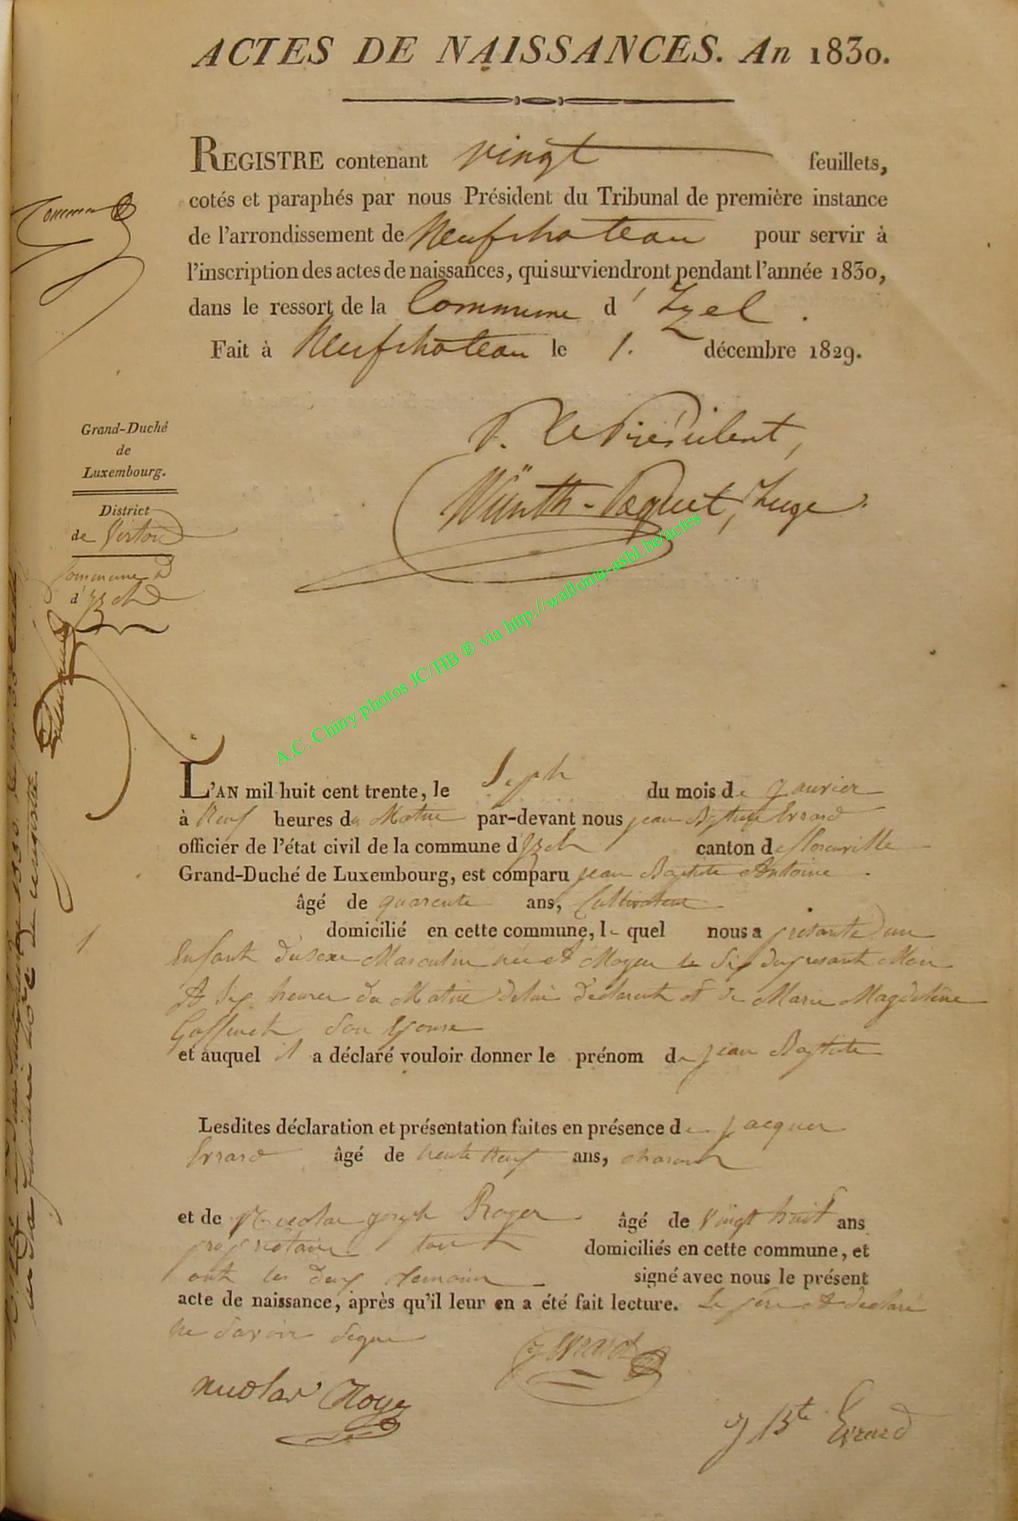 ACTES DE NAISSANCES. An 1830.
REGISTRE contenant vingt feuillets,
cotés et paraphés par nous Président du Tribunal de première instance
de l'arrondissement de Neufchateau pour servir à
l'inscription des actes de naissances, qui surviendront pendant l'année 1830,
dans le ressort de la Commune d' Izel.
Fait à Neufchateau le 1. décembre 1829.
P. Le Président,
Würth-Paquet, Juge
Grand-Duché
de
Luxembourg.
District
de Virton
Commune
d' Izel
A.C. Chiny photos JC/HB ® via http://wallonia-asbl.be/actes
1
L'AN mil huit cent trente, le Sept du mois de janvier
à neuf heures du Matin par-devant nous jean Bptiste Evrard
officier de l'état civil de la commune d'Izel canton de florenville
Grand-Duché de Luxembourg, est comparu jean Baptiste Antoine
âgé de quarente ans, Cultivateur
domicilié en cette commune, le quel nous a présenté d'un
Enfant du sexe Masculin née et Moyen le Six du présant Moi
à Six heures du Matin de lui déclarent et de Marie Magdeleine
Goffinet son Epouse
et auquel il a déclaré vouloir donner le prénom de jean Baptiste
Lesdites déclaration et présentation faites en présence de jacques
Evrard âgé de trente neuf ans,
et de Nicolas joseph Roger âgé de Vingt huit ans
propriétaire tout domiciliés en cette commune, et
ont les deux témoins signé avec nous le présent
acte de naissance, après qu'il leur en a été fait lecture. Le père at déclaré
ne savoir signer
j Evrard
nicolas Roger
j Bte Evrard